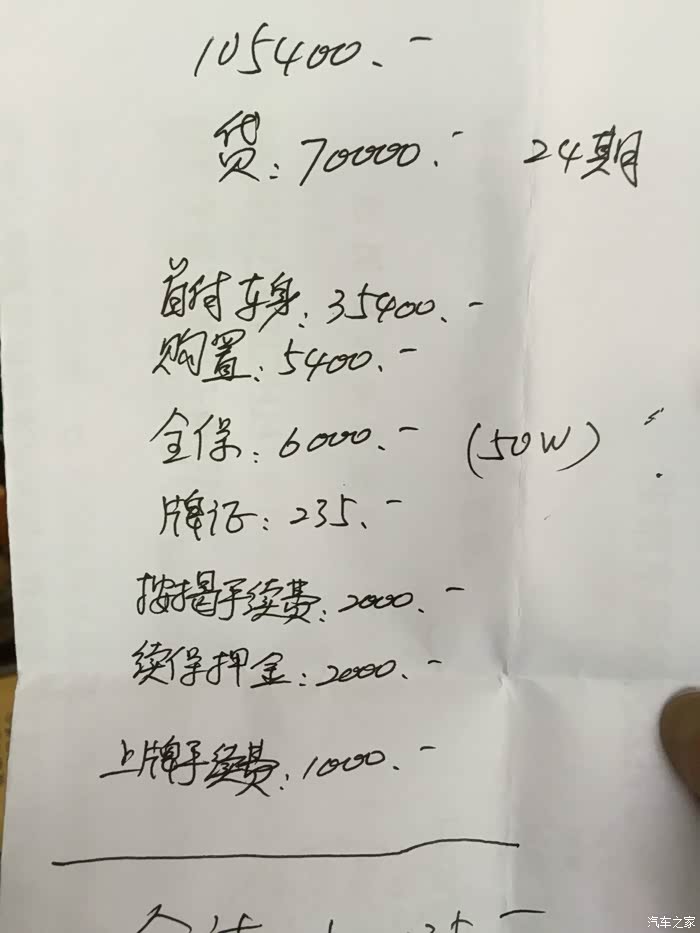 105400.-
贷: 70000.- 24期
首付车身: 35400.-
购置: 5400.-
全保: 6000.- (50W)
牌证: 235.-
按揭手续费: 2000.-
续保押金: 2000.-
上牌手续费: 1000.-
汽车之家